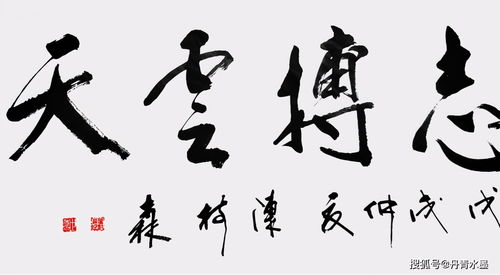 志搏雲天
戊戌仲夏陳樹森
搜狐号@丹青水墨